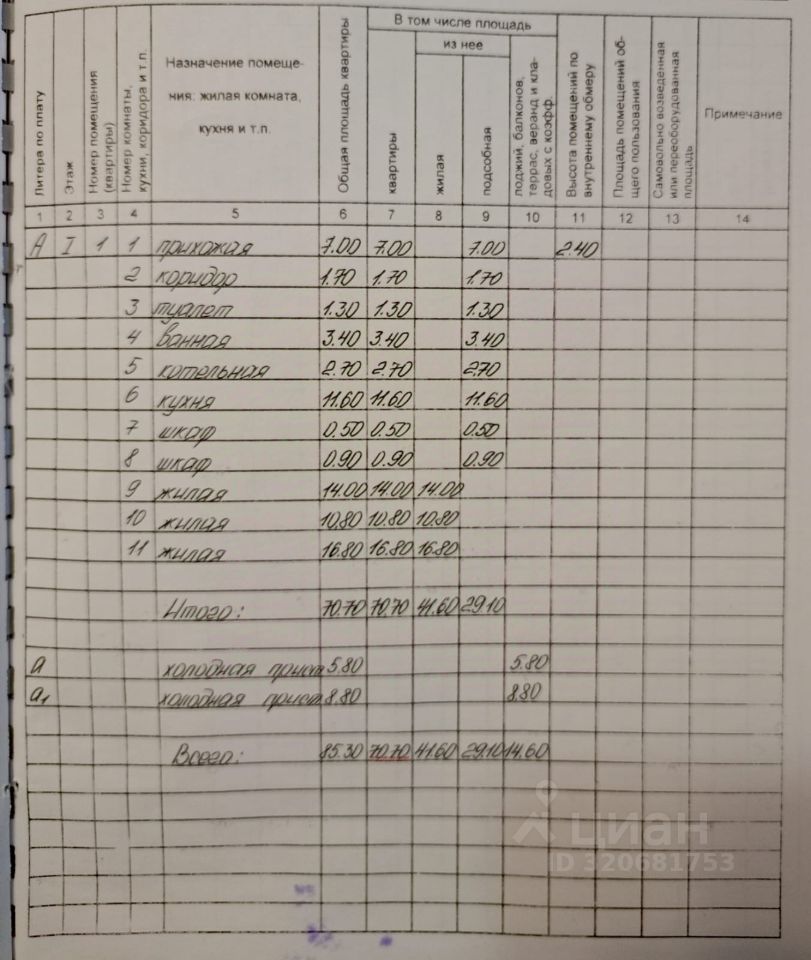 Литера по плату
Этаж
Номер помещения (квартиры)
Номер комнаты, кухни, коридора и т.п.
Назначение помеще-
ния: жилая комната,
кухня и т.п.
Общая площадь квартиры
В том числе площадь
из нее
квартиры
жилая
подсобная
лоджий, балконов, террас, веранд и кла- довых с коэфф.
Высота помещений по внутреннему обмеру
Площадь помещений об- щего пользования
Самовольно возведенная или переоборудованная площадь
Примечание
1 2 3 4 5 6 7 8 9 10 11 12 13 14
А I 1 1 прихожая 7.00 7.00 7.00 2.40
2 коридор 1.70 1.70 1.70
3 туалет 1.30 1.30 1.30
4 ванная 3.40 3.40 3.40
5 котельная 2.70 2.70 2.70
6 кухня 11.60 11.60 11.60
7 шкаф 0.50 0.50 0.50
8 шкаф 0.90 0.90 0.90
9 жилая 14.00 14.00 14.00
10 жилая 10.80 10.80 10.80
11 жилая 16.80 16.80 16.80
Итого: 70.70 70.70 41.60 29.10
а холодная прист 5.80 5.80
а1 холодная прист 8.80 8.80
Всего: 85.30 70.70 41.60 29.10 14.60
циан
ID 320681753